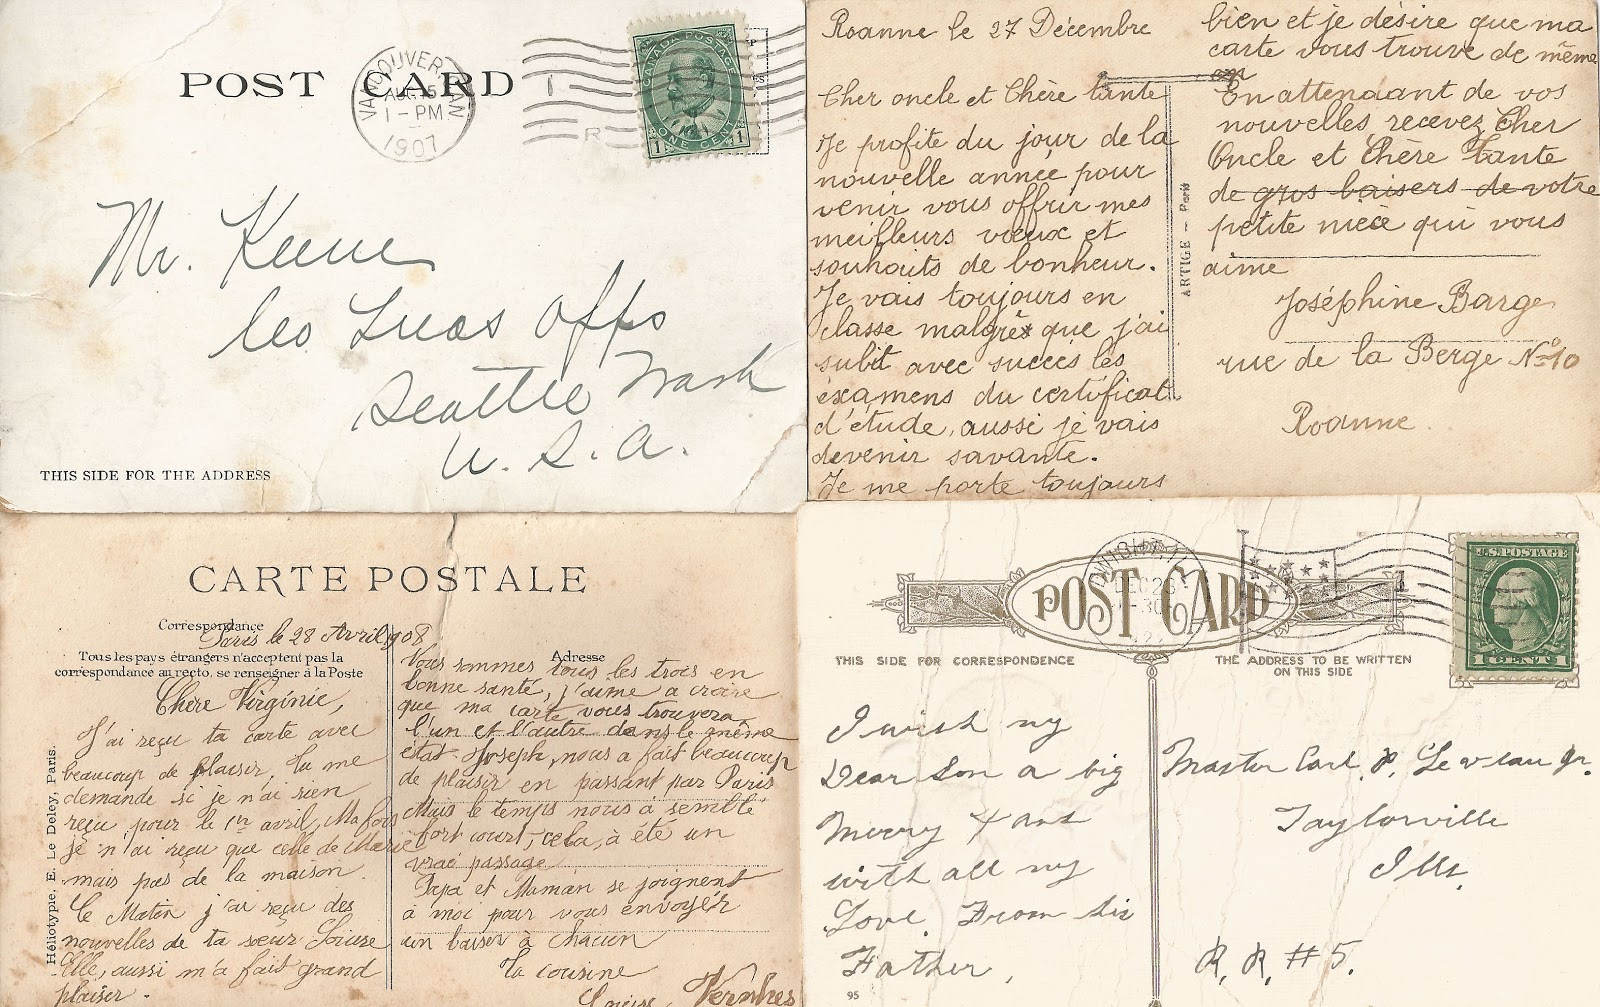 POST CARD
VANCOUVER, CAN
AUG 15
1 - PM
1907
CANADA POSTAGE
ONE CENT
1 1
Mr. Keene
Seattle Wash
U. S. A.
THIS SIDE FOR THE ADDRESS
Roanne le 27 Décembre
Cher oncle et Chère tante
Je profite du jour de la
nouvelle année pour
venir vous offrir mes
meilleurs vœux et
souhaits de bonheur.
Je vais toujours en
classe malgrès que j'ai
subit avec succès les
éxamens du certificat
d'étude, aussi je vais
devenir savante.
Je me porte toujours
ARTIGE - Paris
bien et je désire que ma
carte vous trouve de même
En attendant de vos
nouvelles, recevez Cher
Oncle et Chère Tante
de gros baisers de votre
petite nièce qui vous
aime
Joséphine Barge
rue de la Berge No 10
Roanne.
CARTE POSTALE
Correspondance
Paris le 28 Avril 908
Tous les pays étrangers n'acceptent pas la
correspondance au recto, se renseigner à la Poste
Chère Virginie,
J'ai reçu ta carte avec
beaucoup de plaisir, tu me
demande si je n'ai rien
reçu pour le 1er avril, Ma fois
je n'ai reçu que celle de Marie
mais pas de la maison.
Ce Matin j'ai reçu des
nouvelles de ta sœur
Elle, aussi m'a fait grand
plaisir.
Héliotypie, E. Le Deley, Paris.
Adresse
Vous sommes tous les trois en
bonne santé, j'aime a croire
que ma carte vous trouvera
l'un et l'autre dans le même
état. Joseph, nous a fait beaucoup
de plaisir en passant par Paris
Mais le temps nous à semblé
fort court, cela, à été un
vrai passage
Papa et Maman se joignent
à moi pour vous envoyer
un baiser à chacun
ta cousine
POST CARD
DEC 26
THIS SIDE FOR CORRESPONDENCE
THE ADDRESS TO BE WRITTEN
ON THIS SIDE
U.S. POSTAGE
1 CENT 1
I wish my
Dear Son a big
Merry Xmas
with all my
Love. From his
Father,
95
Master Carl P. Leveau Jr.
Taylorville
Ills.
R. R. #5.